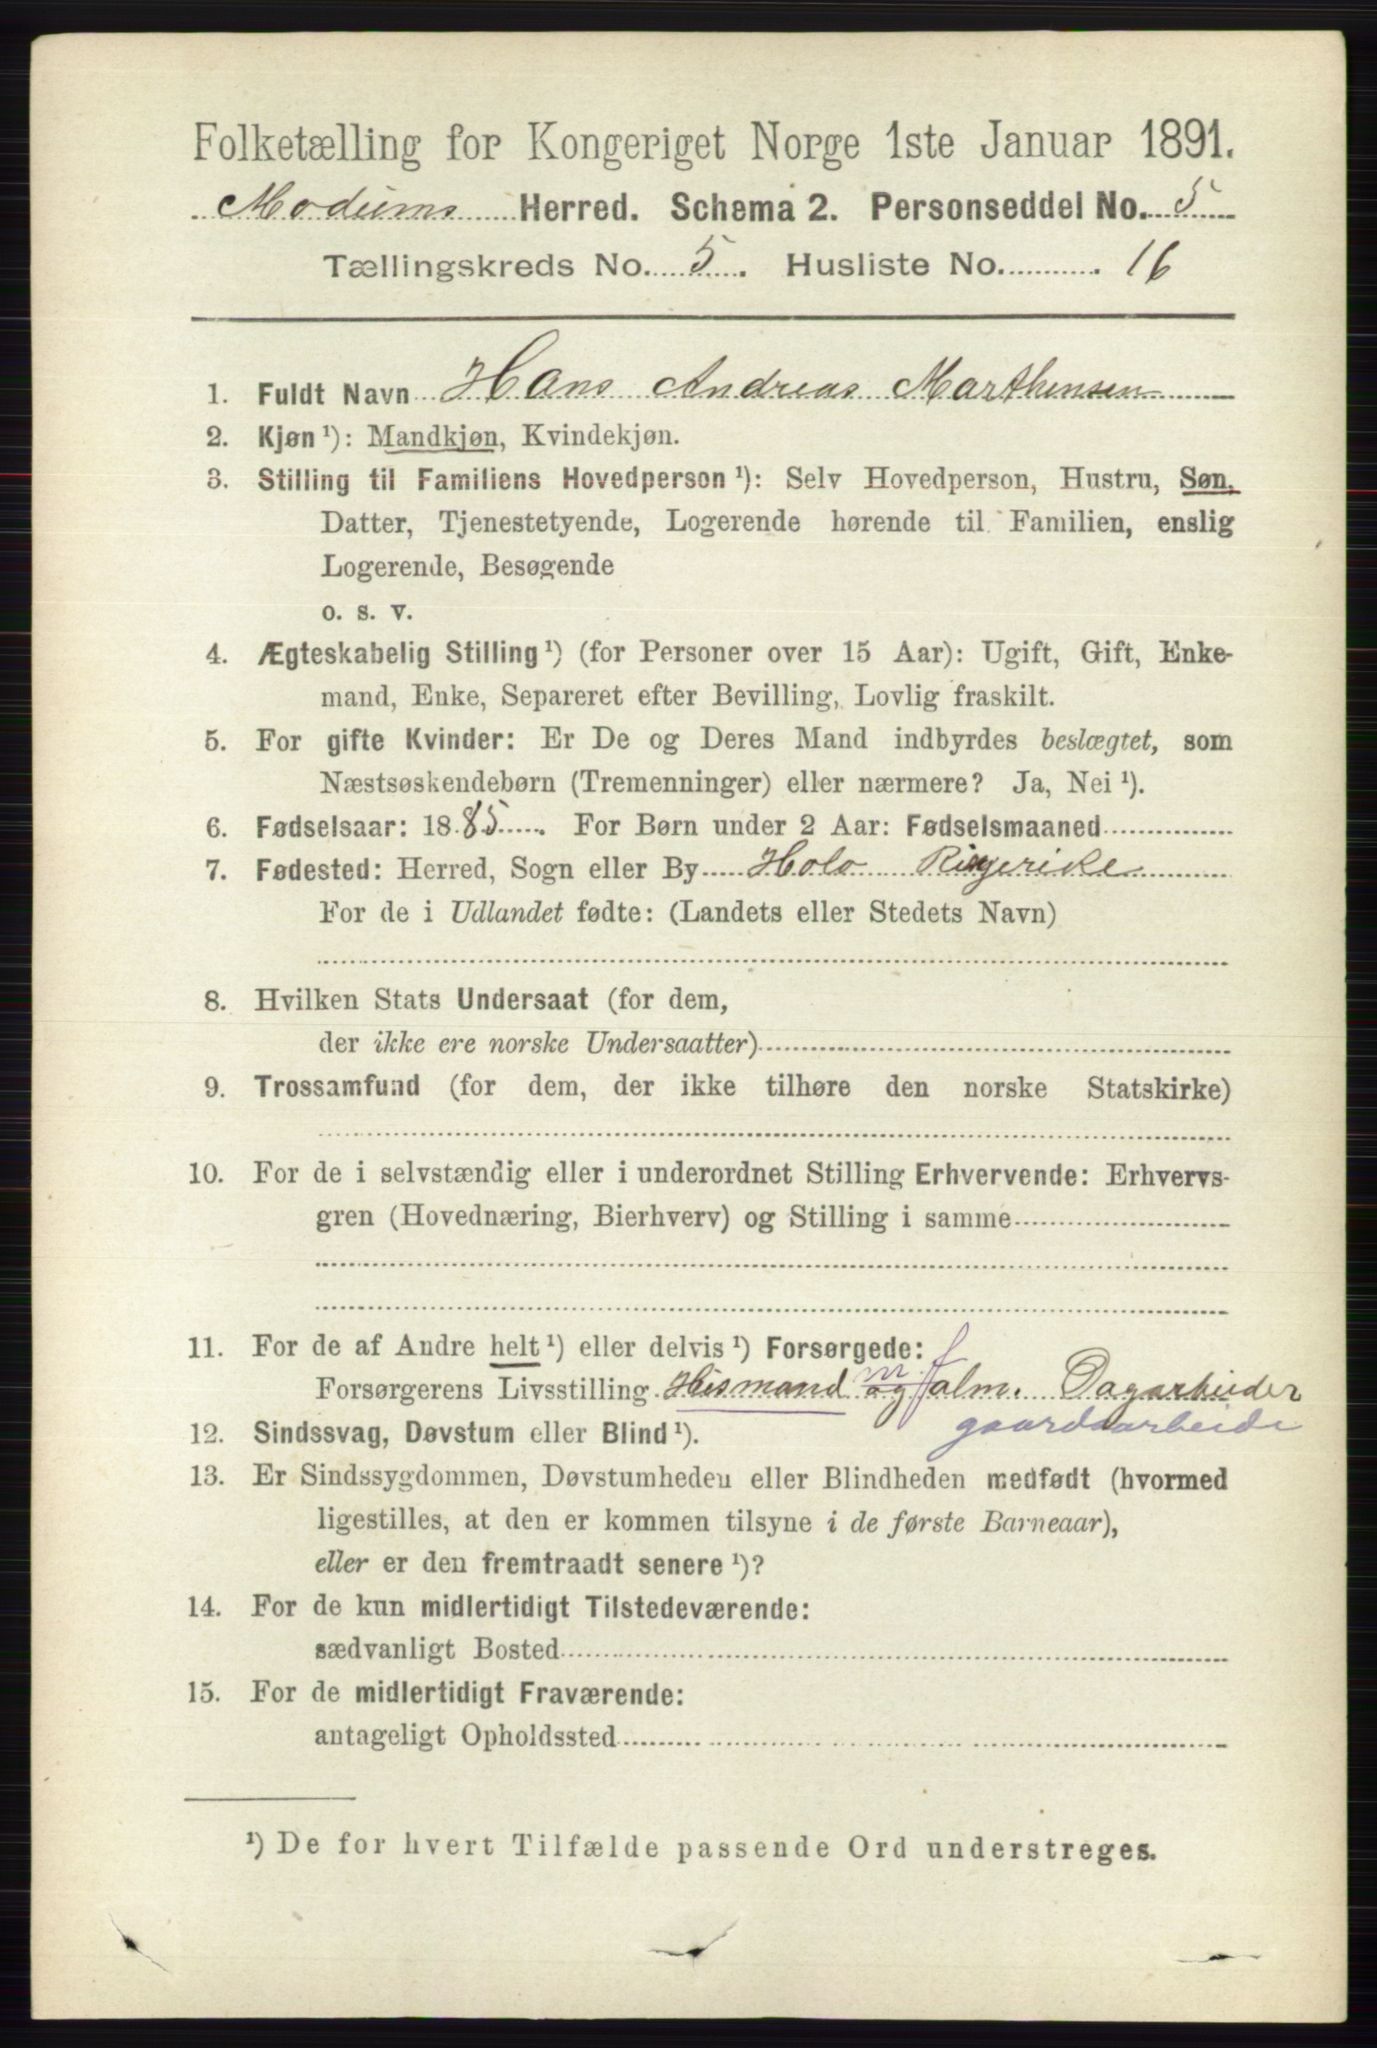 Folketælling for Kongeriget Norge 1ste Januar 1891.
Modums Herred. Schema 2. Personseddel No. 5
Tællingskreds No. 5. Husliste No. 16
1. Fuldt Navn Hans Andreas Marthinsen
2. Kjøn ¹): Mandkjøn, Kvindekjøn.
3. Stilling til Familiens Hovedperson ¹): Selv Hovedperson, Hustru, Søn,
Datter, Tjenestetyende, Logerende hørende til Familien, enslig
Logerende, Besøgende
o. s. v.
4. Ægteskabelig Stilling ¹) (for Personer over 15 Aar): Ugift, Gift, Enke-
mand, Enke, Separeret efter Bevilling, Lovlig fraskilt.
5. For gifte Kvinder: Er De og Deres Mand indbyrdes beslægtet, som
Næstsøskendebørn (Tremenninger) eller nærmere? Ja, Nei ¹).
6. Fødselsaar: 1885. For Børn under 2 Aar: Fødselsmaaned
7. Fødested: Herred, Sogn eller By Hole Ringerike
For de i Udlandet fødte: (Landets eller Stedets Navn)
8. Hvilken Stats Undersaat (for dem,
der ikke ere norske Undersaatter)
9. Trossamfund (for dem, der ikke tilhøre den norske Statskirke)
10. For de i selvstændig eller i underordnet Stilling Erhvervende: Erhvervs-
gren (Hovednæring, Bierhverv) og Stilling i samme
11. For de af Andre helt ¹) eller delvis ¹) Forsørgede:
Forsørgerens Livsstilling Husmand m og f alm. Dagarbeider
gaardsarbeide
12. Sindssvag, Døvstum eller Blind ¹).
13. Er Sindssygdommen, Døvstumheden eller Blindheden medfødt (hvormed
ligestilles, at den er kommen tilsyne i de første Barneaar),
eller er den fremtraadt senere ¹)?
14. For de kun midlertidigt Tilstedeværende:
sædvanligt Bosted
15. For de midlertidigt Fraværende:
antageligt Opholdssted
¹) De for hvert Tilfælde passende Ord understreges.